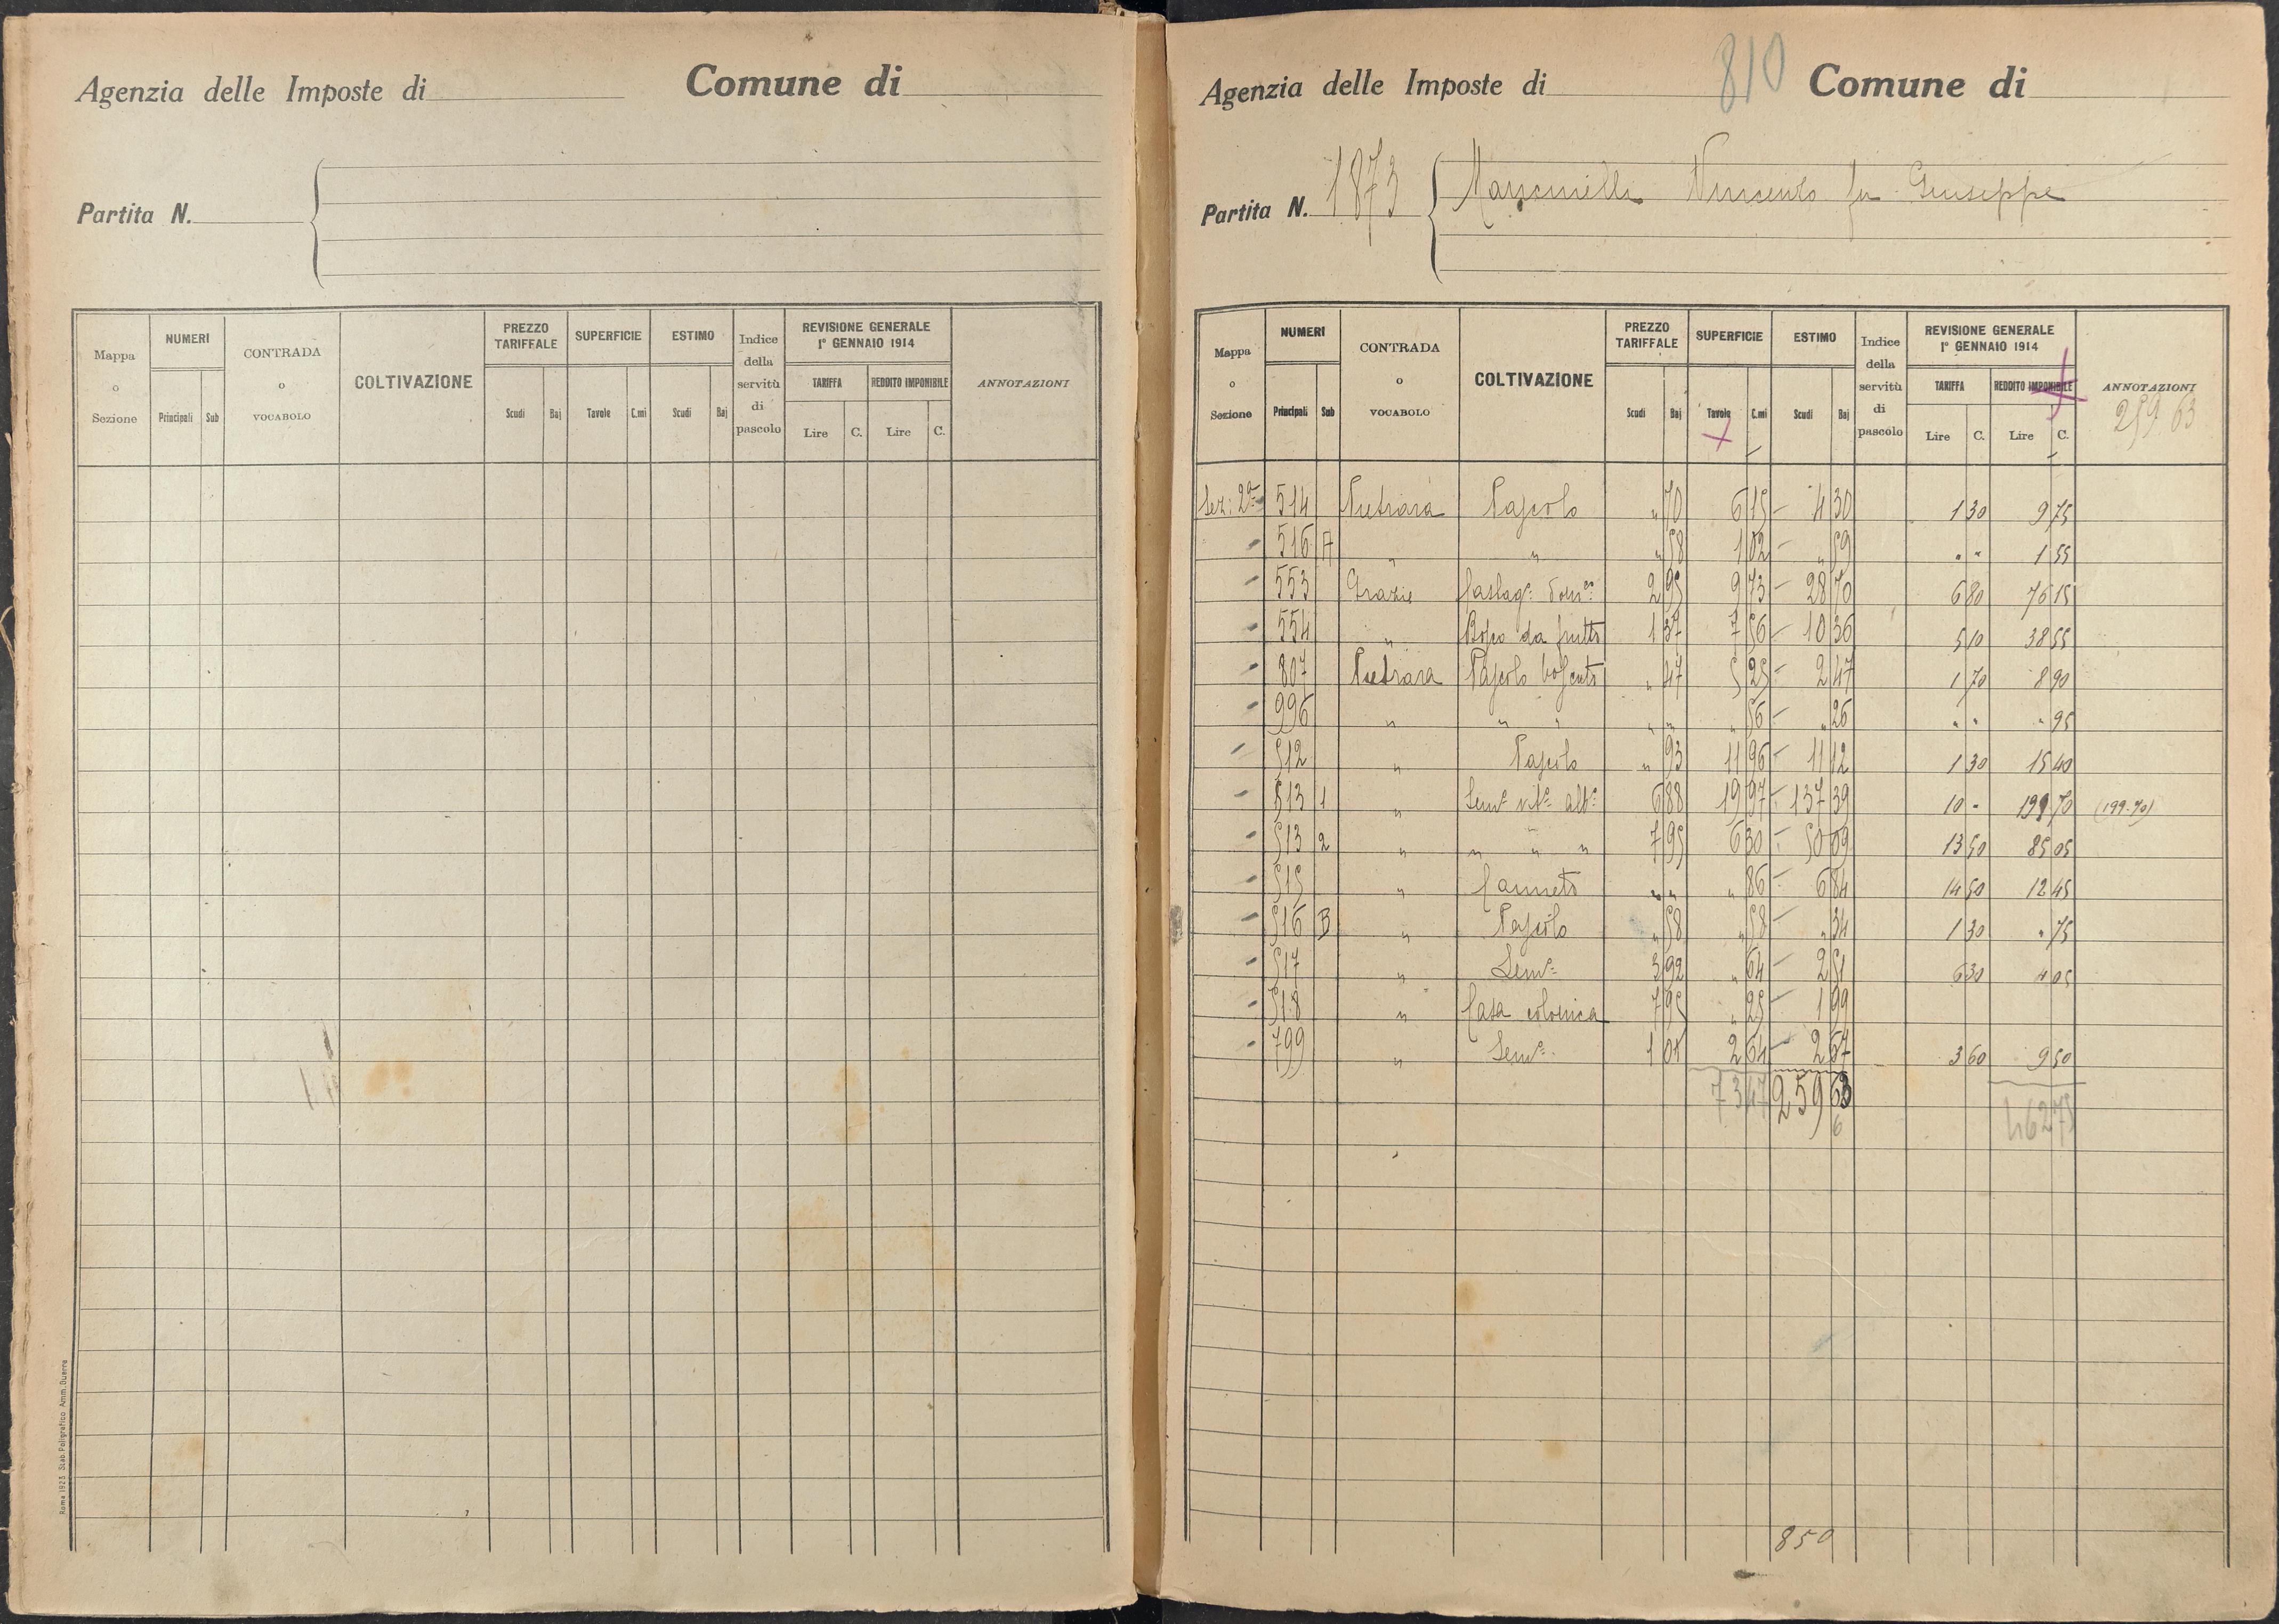 Agenzia delle Imposte di Comune di
Partita N.
Mappa o Sezione NUMERI Principali Sub CONTRADA o VOCABOLO COLTIVAZIONE PREZZO TARIFFALE Scudi Baj SUPERFICIE Tavole C.mi ESTIMO Scudi Baj Indice della servitù di pascolo REVISIONE GENERALE 1° GENNAIO 1914 TARIFFA Lire C. REDDITO IMPONIBILE Lire C. ANNOTAZIONI
Roma 1923 Stab. Poligrafico Amm. Guerra
810
Agenzia delle Imposte di Comune di
Partita N. 1873 Mancinelli Vincenzo fu Giuseppe
Mappa o Sezione NUMERI Principali Sub CONTRADA o VOCABOLO COLTIVAZIONE PREZZO TARIFFALE Scudi Baj SUPERFICIE Tavole C.mi ESTIMO Scudi Baj Indice della servitù di pascolo REVISIONE GENERALE 1° GENNAIO 1914 TARIFFA Lire C. REDDITO IMPONIBILE Lire C. ANNOTAZIONI
259 63
Sez: 2ª 514 Pietrara Pascolo " 70 6 15 4 30 1 30 9 75
" 516 A " " " 58 1 02 " 59 " " 1 55
" 553 Grazie Castagº domº: 2 95 9 73 28 70 6 80 76 15
" 554 " Bosco da frutto 1 37 7 56 10 36 5 10 38 55
" 807 Pietrara Pascolo boscato " 47 5 25 2 47 1 70 8 90
" 996 " " " " " " 56 " 26 " " " 95
" 512 " Pascolo " 93 11 96 11 12 1 30 15 40
" 513 1 " Semº vitº albº: 6 88 19 97 137 39 10 - 199 70 (199.70)
" 513 2 " " " " 7 95 6 30 50 09 13 50 85 05
" 515 " Canneto " " " 86 6 84 14 50 12 45
" 516 B " Pascolo " 58 " 58 " 34 1 30 " 75
" 517 " Semº 3 92 " 64 2 51 6 30 4 05
" 518 " Casa colonica 7 95 " 25 1 99
" 799 " Semº 1 01 2 64 2 67 3 60 9 50
73 47 259 63 462 75
6
850